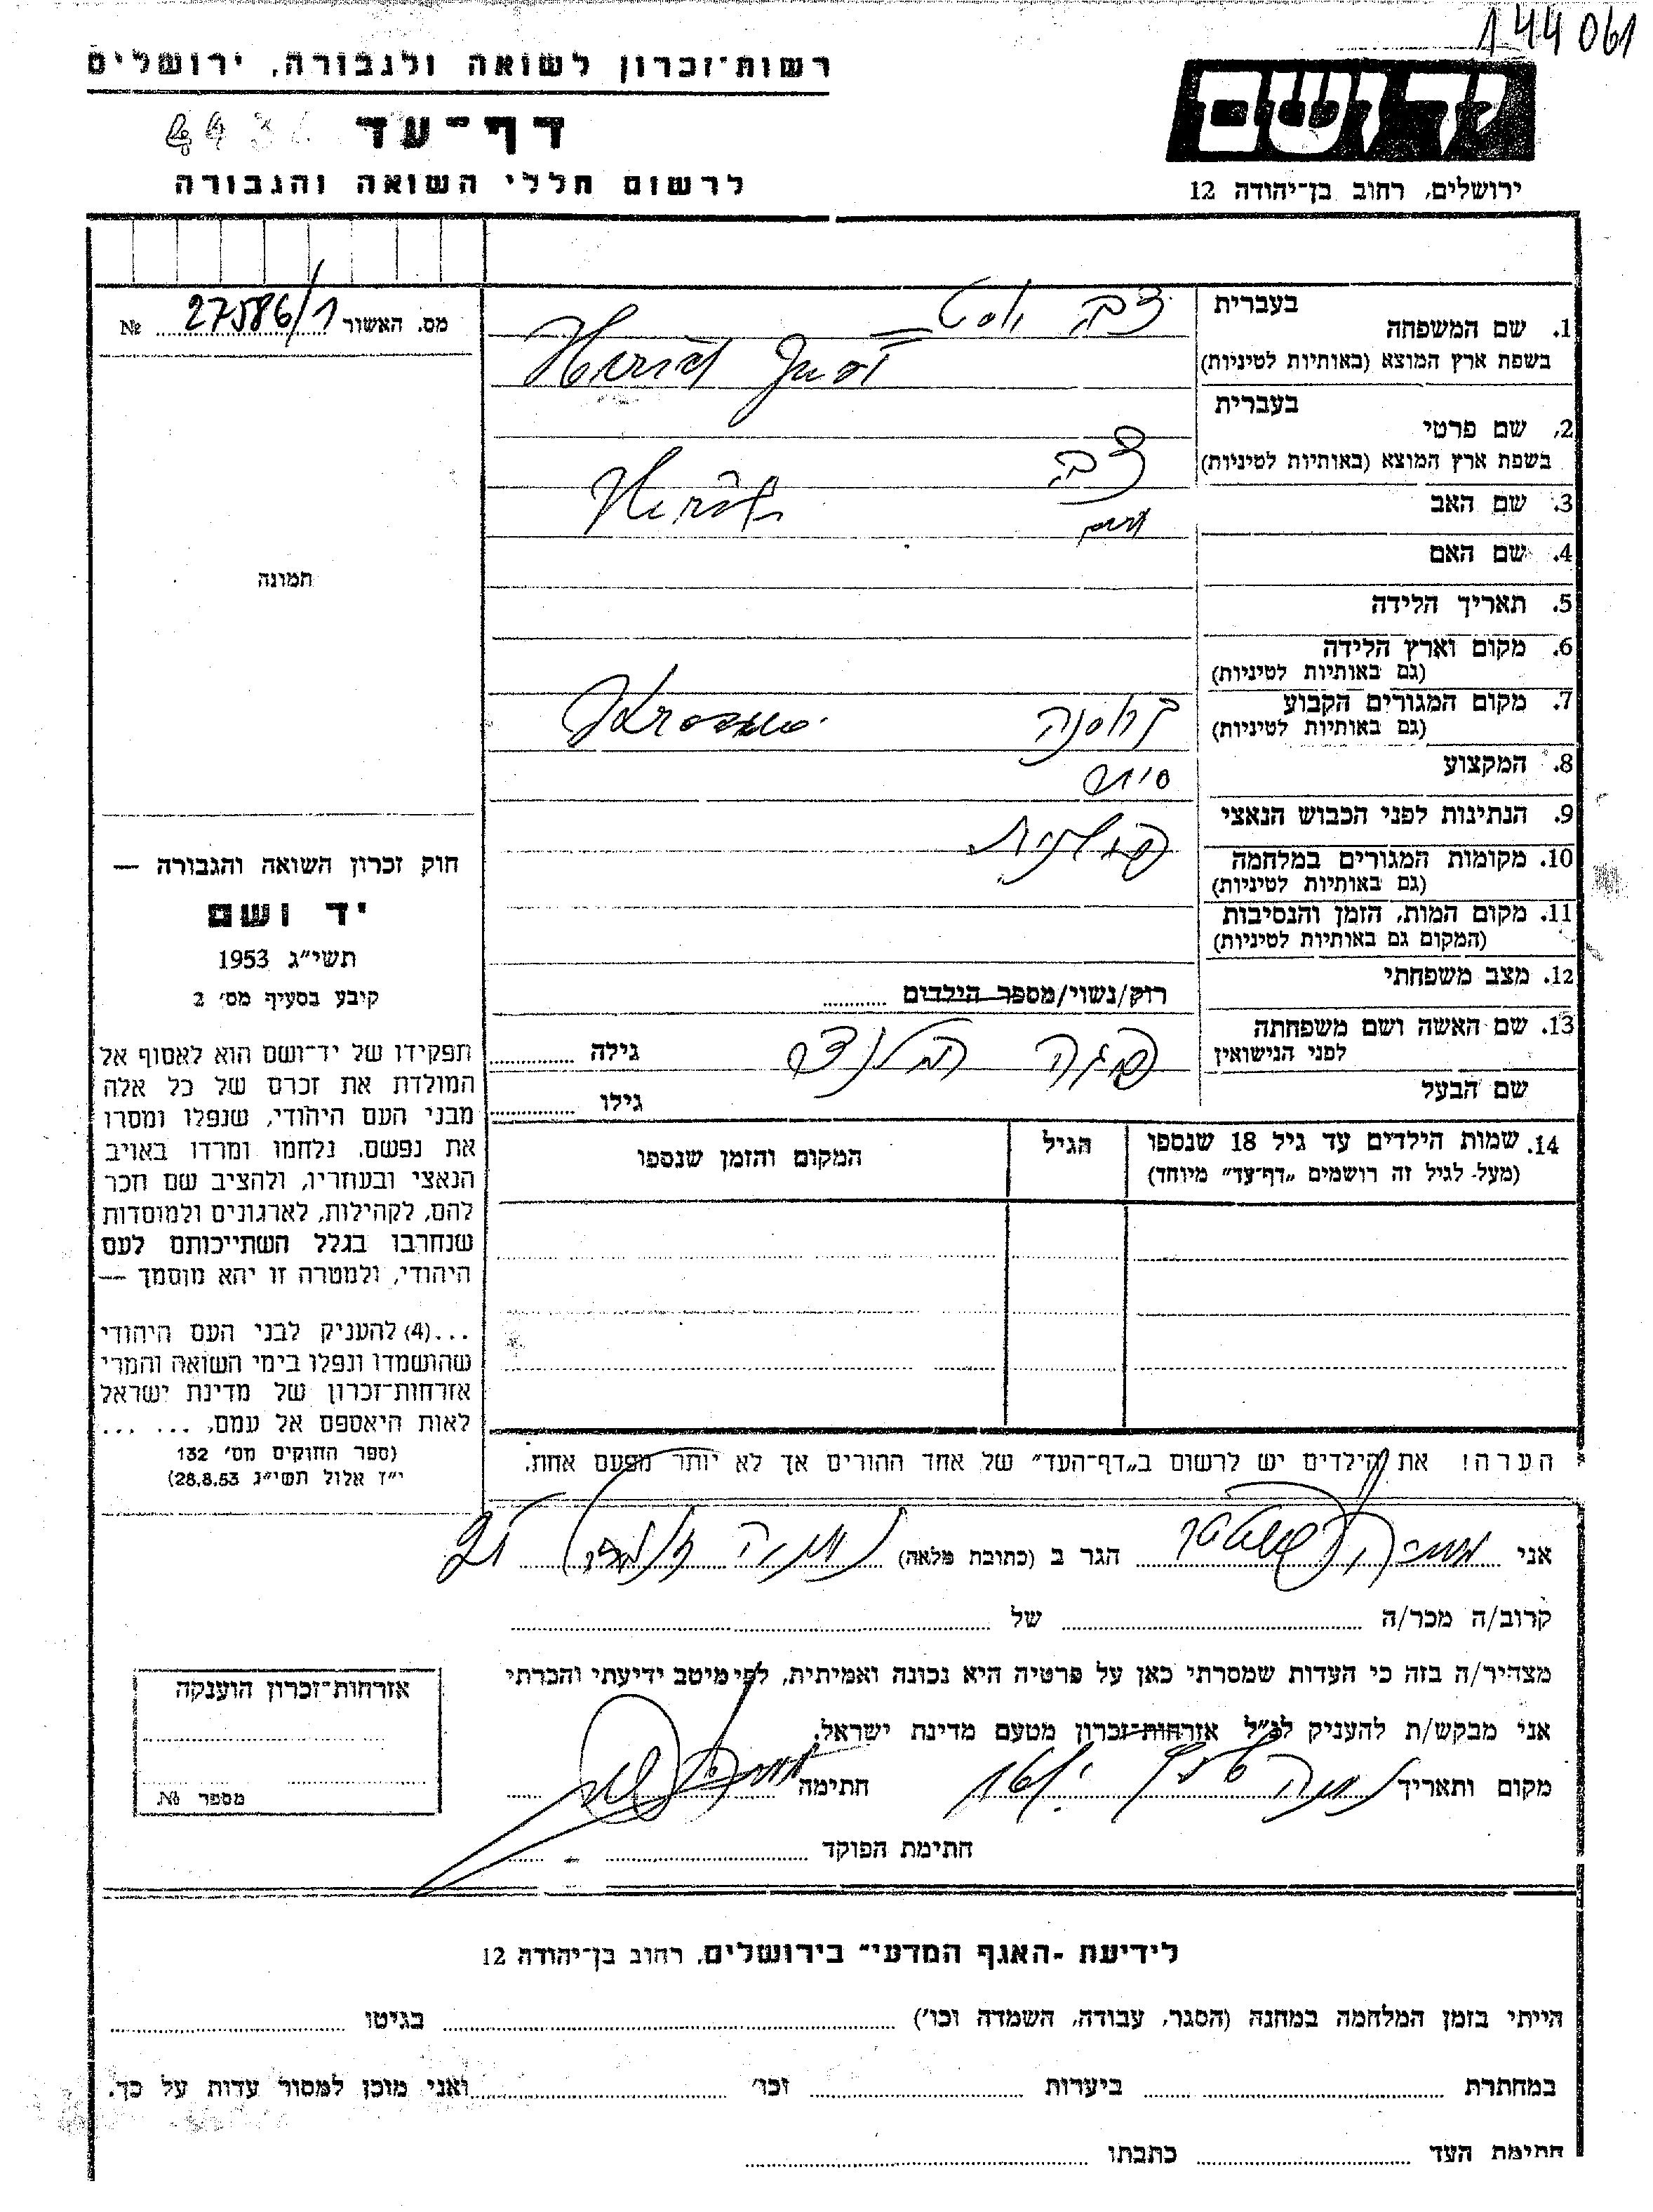 144061
רשות־זכרון לשואה ולגבורה, ירושלים
דף־עד
לרשום חללי השואה והגבורה
ידושם
ירושלים, רחוב בן־יהודה 12
מס. האשור 27586/1 №
תמונה
חוק זכרון השואה והגבורה —
יד ושם
תשי״ג 1953
קיבע בסעיף מס׳ 2
תפקידו של יד־ושם הוא לאסוף אל
המולדת את זכרם של כל אלה
מבני העם היהודי, שנפלו ומסרו
את נפשם, נלחמו ומרדו באויב
הנאצי ובעוזריו, ולהציב שם וזכר
להם, לקהילות, לארגונים ולמוסדות
שנחרבו בגלל השתייכותם לעם
היהודי, ולמטרה זו יהא מוסמך —
...(4) להעניק לבני העם היהודי
שהושמדו ונפלו בימי השואה והמרי
אזרחות־זכרון של מדינת ישראל
לאות היאספם אל עמם. ... ...
(ספר החוקים מס׳ 132
י״ז אלול תשי״ג 28.8.53)
בעברית
1. שם המשפחה
בשפת ארץ המוצא (באותיות לטיניות)
Just
בעברית
2. שם פרטי
בשפת ארץ המוצא (באותיות לטיניות)
צבי
3. שם האב
4. שם האם
5. תאריך הלידה
6. מקום וארץ הלידה
(גם באותיות לטיניות)
7. מקום המגורים הקבוע
(גם באותיות לטיניות)
8. המקצוע
9. הנתינות לפני הכבוש הנאצי
פולנית
10. מקומות המגורים במלחמה
(גם באותיות לטיניות)
11. מקום המות, הזמן והנסיבות
(המקום גם באותיות לטיניות)
12. מצב משפחתי
רוק/נשוי/מספר הילדים
13. שם האשה ושם משפחתה
לפני הנישואין
גילה
שם הבעל
גילו
14. שמות הילדים עד גיל 18 שנספו
(מעל לגיל זה רושמים „דף־עד״ מיוחד)
הגיל
המקום והזמן שנספו
הערה! את הילדים יש לרשום ב„דף־העד״ של אחד ההורים אך לא יותר מפעם אחת.
אני הגר ב (כתובת מלאה) נתניה
קרוב/ה מכר/ה של
מצהיר/ה בזה כי העדות שמסרתי כאן על פרטיה היא נכונה ואמיתית, לפי מיטב ידיעתי והכרתי
אני מבקש/ת להעניק לנ״ל אזרחות־זכרון מטעם מדינת ישראל.
מקום ותאריך נתניה חתימה
חתימת הפוקד
אזרחות־זכרון הוענקה
מספר №
לידיעת ־האגף המדעי״ בירושלים, רחוב בן־יהודה 12
הייתי בזמן המלחמה במחנה (הסגר, עבודה, השמדה וכו׳) בגיטו
במחתרת ביערות וכו׳ ואני מוכן למסור עדות על כך.
חתימת העד כתבתו